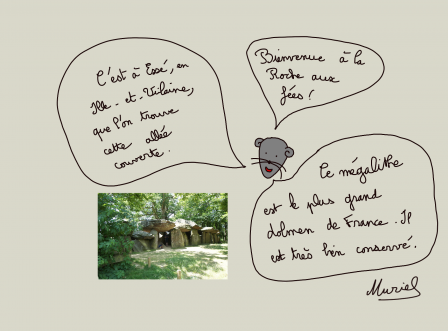 Bienvenue à la
Roche aux
fées !
C'est à Essé, en
Ille-et-Vilaine,
que l'on trouve
cette allée
couverte.
Ce mégalithe
est le plus grand
dolmen de France. Il
est très bien conservé.
Muriel